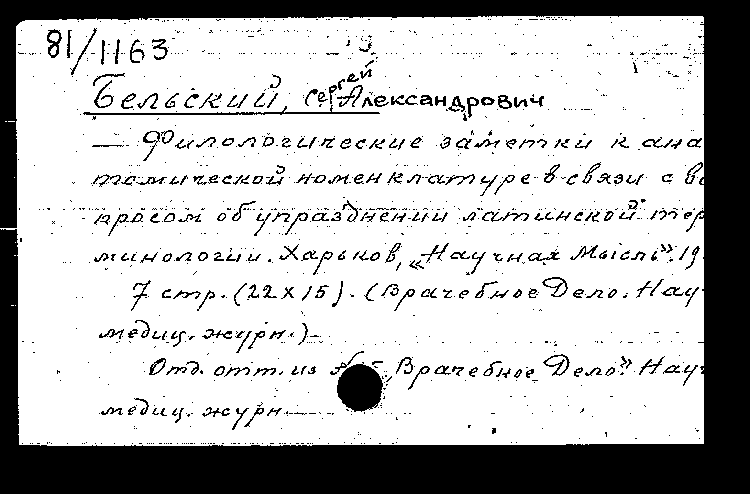 81/1163
Бельский, Сергей Александрович
— Филологические заметки к ана
томической номенклатуре в связи с во
просом об упразднении латинской тер
минологии. Харьков, „Научная Мысль". 19
7 стр. (22 х 15). (Врачебное Дело. Науч
медиц. журн.)—
Отд. отт. из „Врачебное Дело". Науч
медиц. журн.—